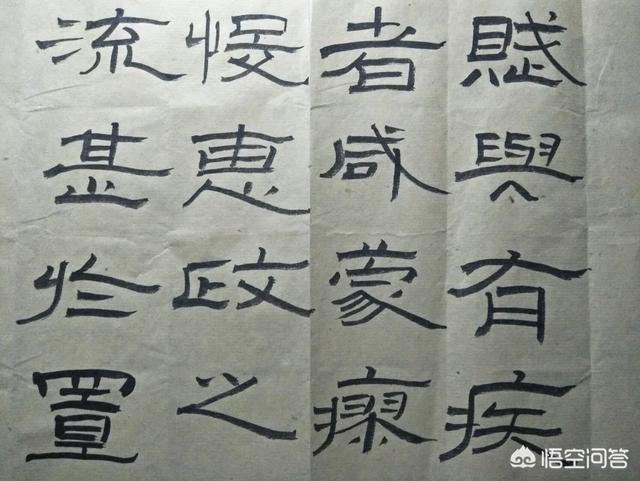 賦與有疾
者咸蒙瘳
悛惠政之
流甚於置
悟空问答